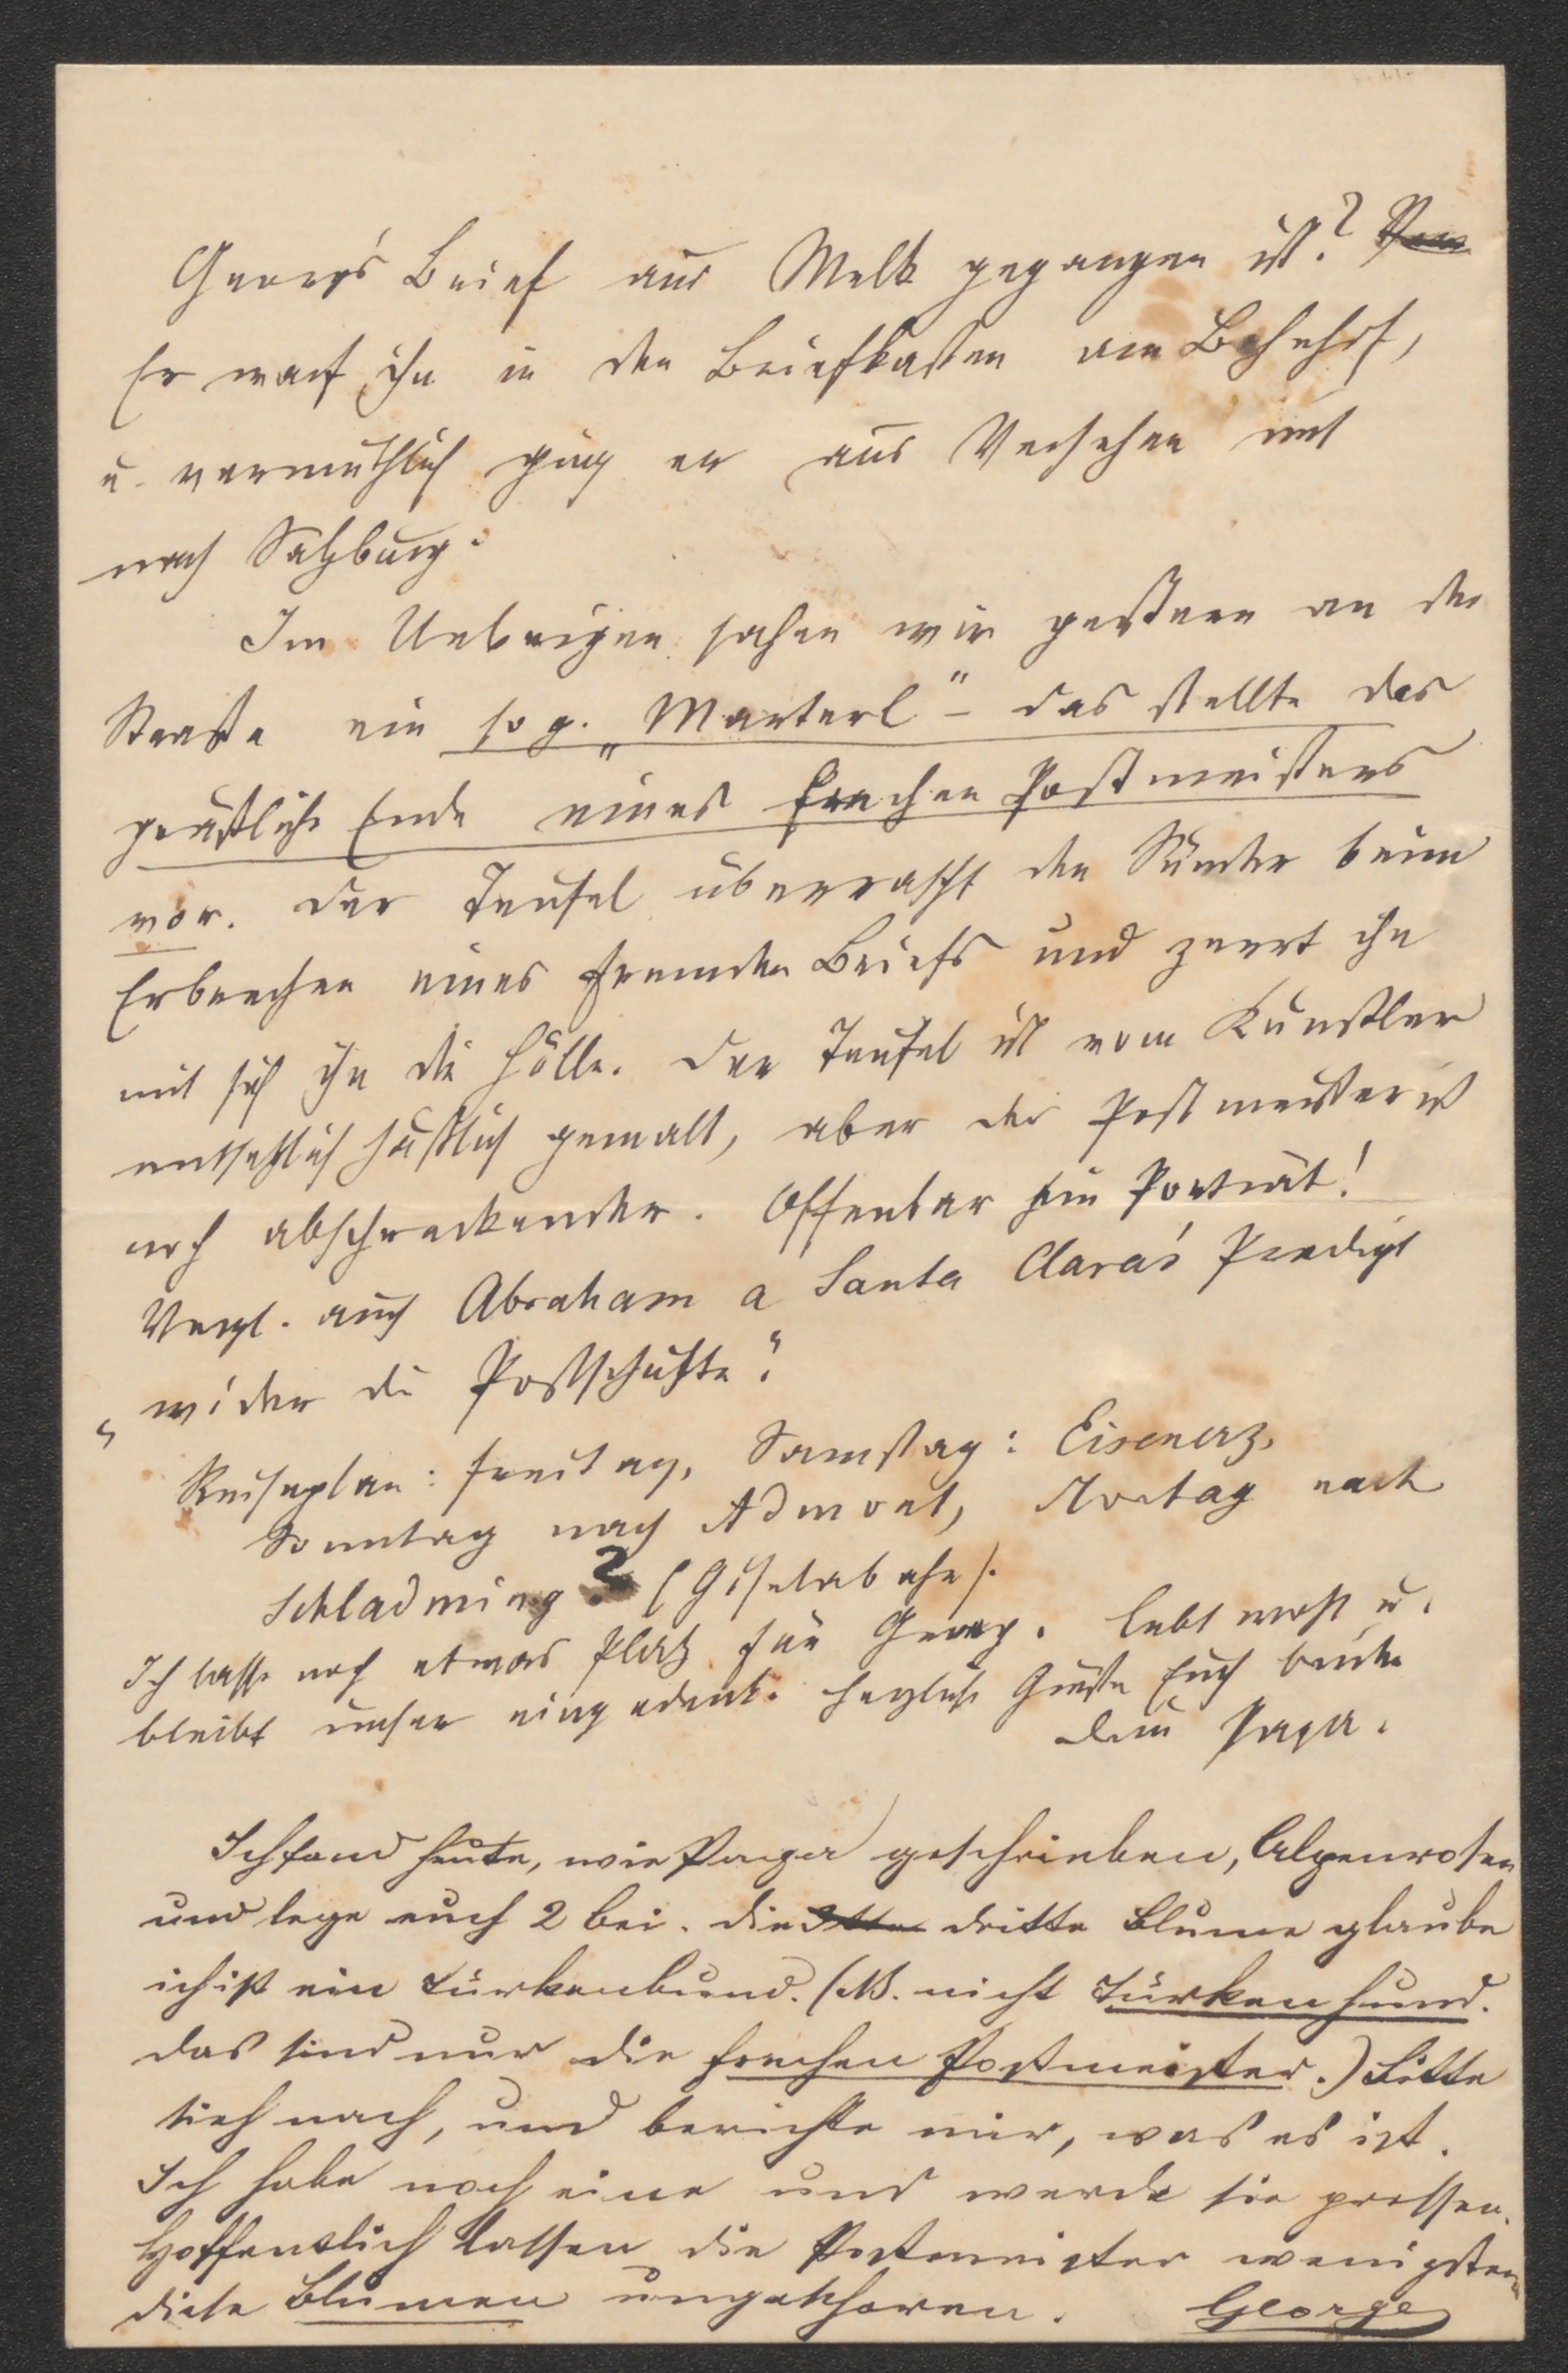 Georg's Brief aus Melk gegangen ist?
Er warf ihn in den Briefkasten am Bahnhof,
u. vermuthlich ging er aus Versehen mit
nach Salzburg.
Im Uebrigen sahen wir gestern an der
Straße ein sog. „Marterl" - das stellte das
gräßliche Ende eines frechen Postmeisters
vor. Der Teufel überrascht den Sünder beim
Erbrechen eines fremden Briefs und zerrt ihn
mit sich in die Hölle. Der Teufel ist vom Künstler
entsetzlich häßlich gemalt, aber der Postmeister ist
noch abschreckender. Offenbar ein Porträt!
Vergl. auch Abraham a Santa Clara's Predigt
„wider die Postschufte".
Reiseplan: Freitag, Samstag: Eisenerz,
Sonntag nach Admont, Montag nach
Schladming? (Giselabahn).
Ich lasse noch etwas Platz für Georg. Lebt wohl u.
bleibt unser eingedenk. Herzliche Grüße Euch beiden
Dein Papa.
Ich fand heute, wie Papa geschrieben, Alpenrosen
und lege euch 2 bei. Die dritte Blume glaube
ich ist ein Türkenbund. (NB. nicht Türkenhund.
Das sind nur die frechen Postmeister.) Bitte
sieh nach, und berichte mir, was es ist.
Ich habe noch eine und werde sie pressen.
Hoffentlich lassen die Postmeister wenigstens
diese Blumen ungeschoren. George